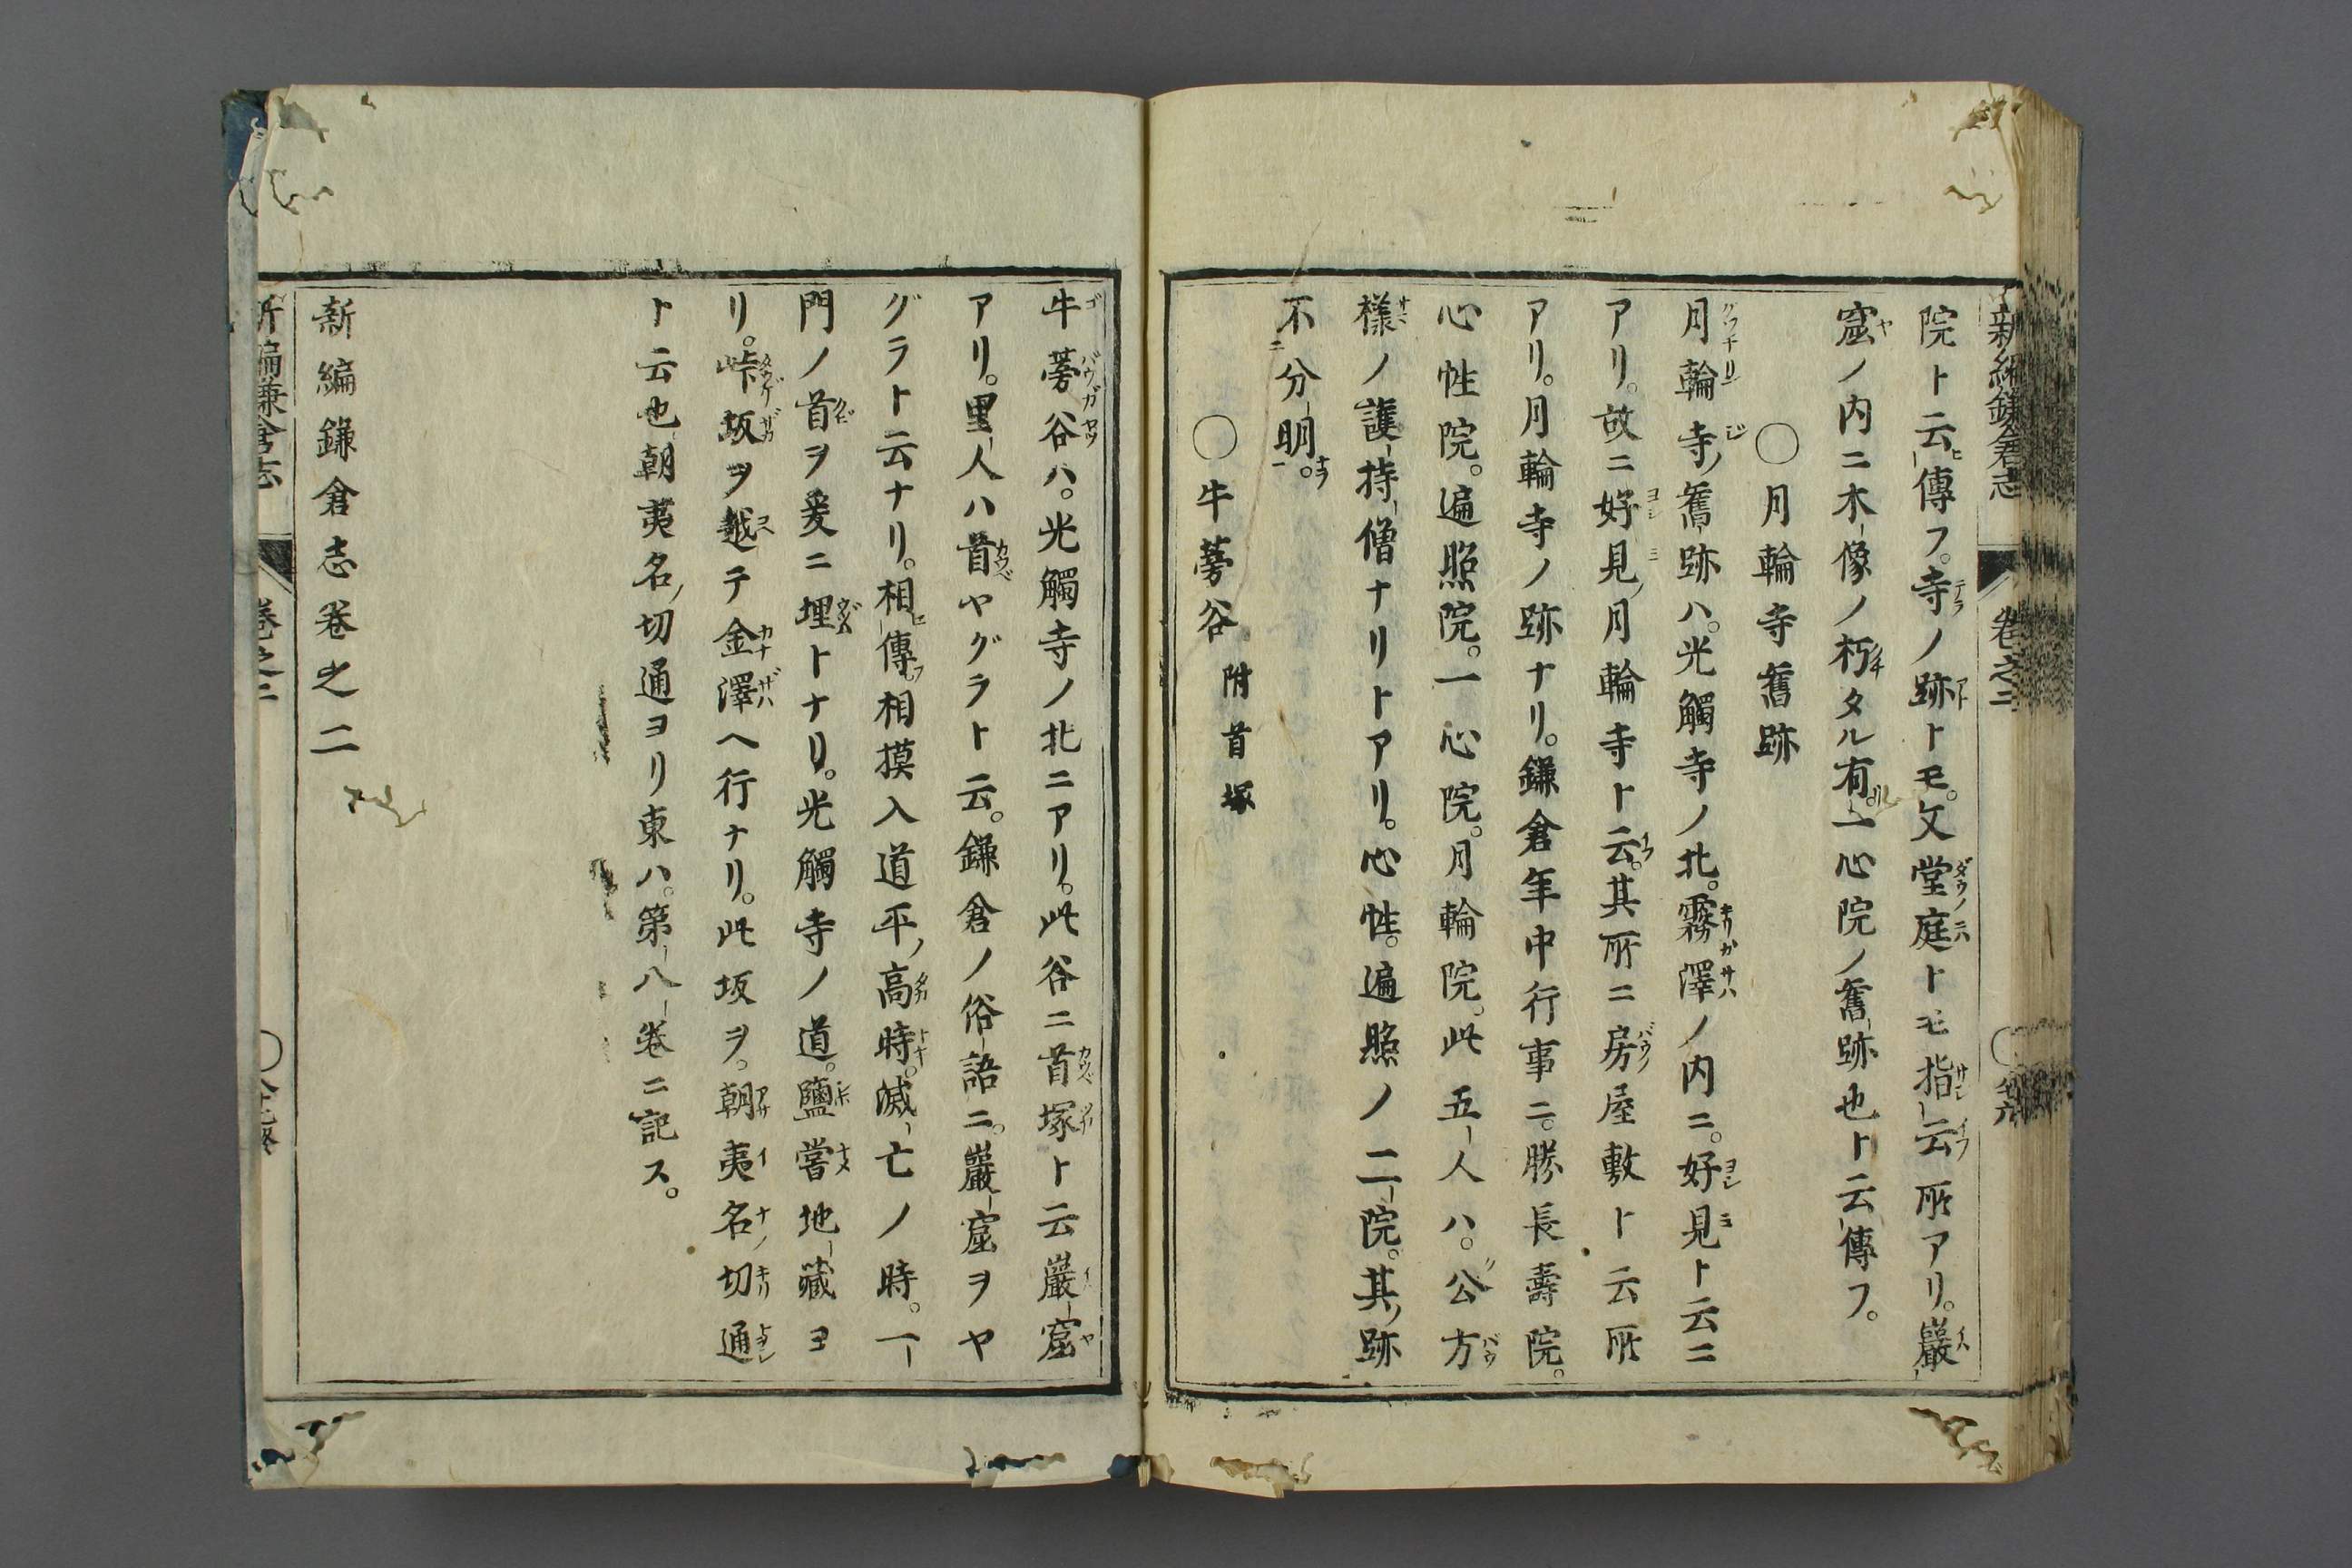 新編鎌倉志　卷之二
院ト云傳フ。寺ノ跡トモ。又堂庭トモ指云所アリ。巖
窟ノ内ニ木像ノ朽タル有。一心院ノ舊跡也ト云傳フ。
○月輪寺舊跡
月輪寺舊跡ハ。光觸寺ノ北。霧澤ノ内ニ。好見ト云ニ
アリ。故ニ好見月輪寺ト云。其所ニ房屋敷ト云所
アリ。月輪寺ノ跡ナリ。鎌倉年中行事ニ。勝長壽院。
心性院。遍照院。一心院。月輪院。此五人ハ。公方
樣ノ護持僧ナリトアリ。心性。遍照ノ二院。其跡
不分明。
○牛蒡谷　附首塚
牛蒡谷ハ。光觸寺ノ北ニアリ。此谷ニ首塚ト云巖窟
アリ。里人ハ首ヤグラト云。鎌倉ノ俗語ニ。巖窟ヲヤ
グラト云ナリ。相傳。相摸入道平高時。滅亡ノ時。一
門ノ首ヲ爰ニ埋トナリ。光觸寺ノ道。鹽嘗地藏ヨ
リ。峠坂ヲ越テ金澤ヘ行ナリ。此坂ヲ。朝夷名切通
ト云也。朝夷名切通ヨリ東ハ。第八卷ニ記ス。
新編鎌倉志卷之二
新編鎌倉志　卷之二